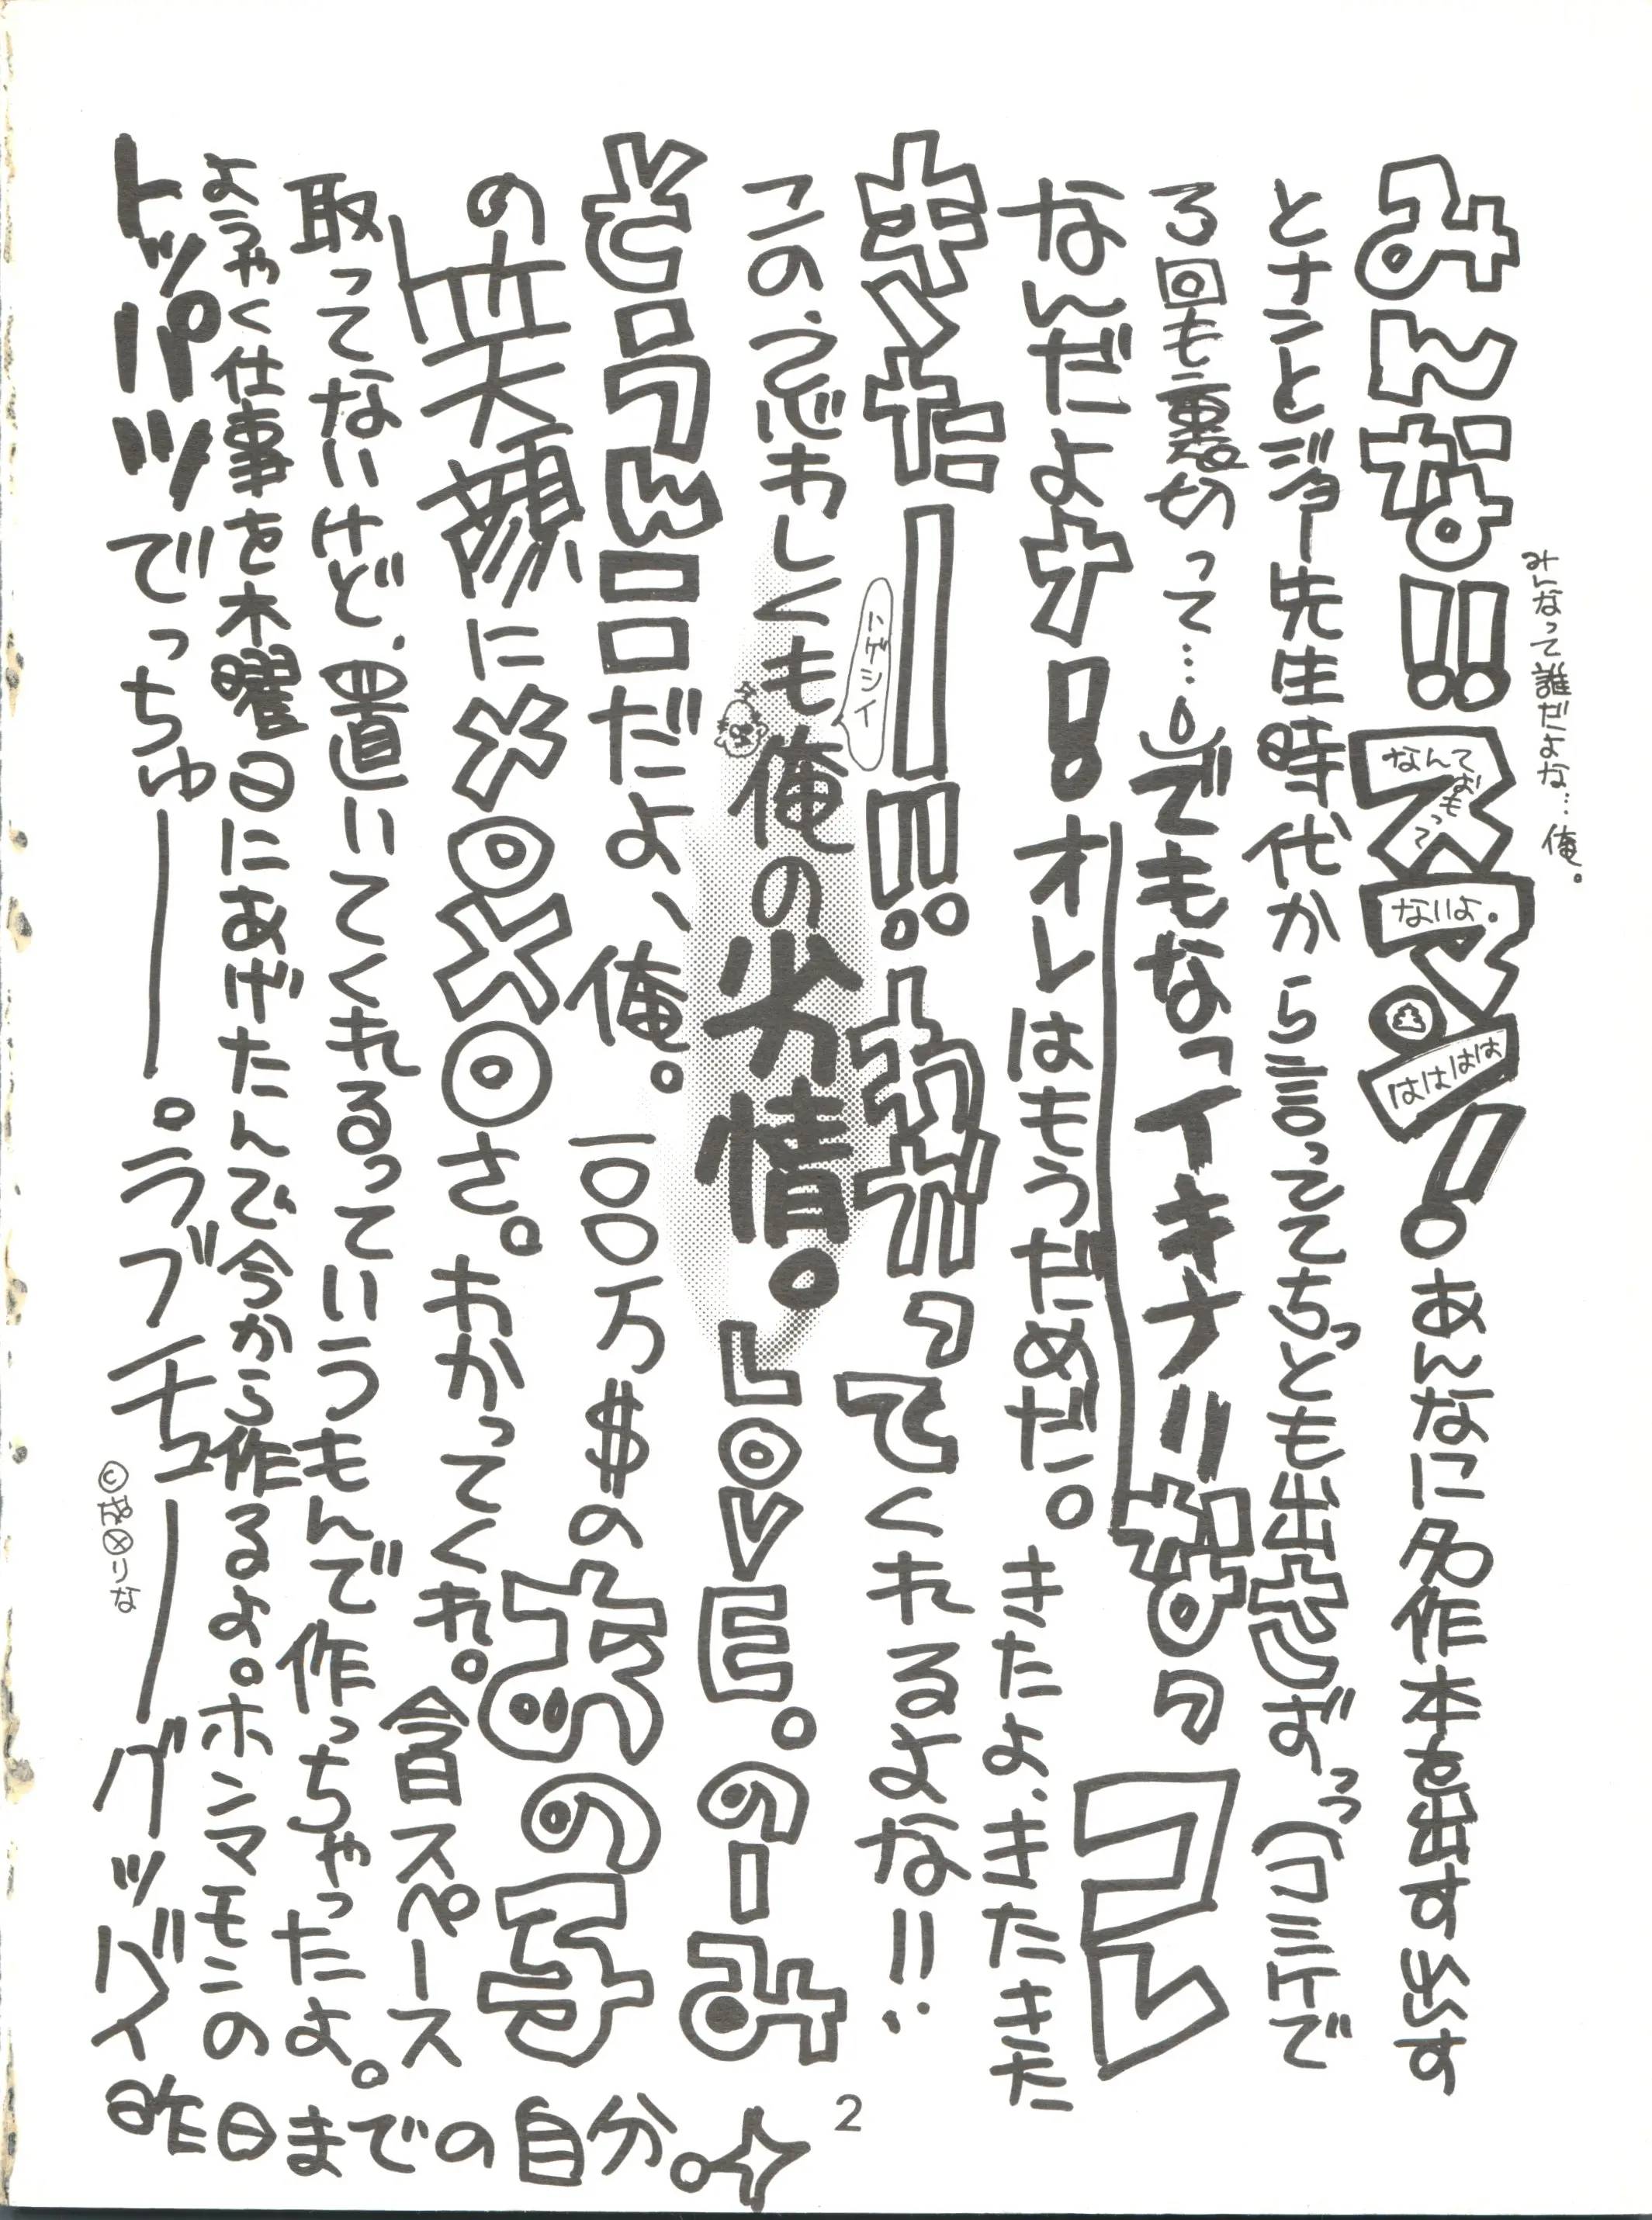 みんなって誰だよな…俺。
みんな!!スマン!。あんなに名作本を出す出す
なんておもって
ないよ。
はははは
とナントとジャー先生時代から言っててちっとも出さずっっ(コミケで
る回も裏切って……。)でもなっイキナリなのっコレ
なんだよォ!オレはもうだめだ。きたよ、きたきた
キタ―!!。わかってくれるよな!!
ハゲシイ
この、うっとおしくも俺の劣情。LOVE。のーみ
そうんロロだよ、俺。一〇〇万$のあの子
の笑顔にメロメロさ。わかってくれ。今日スペース
取ってないけど、置いてくれるっていうもんで作っちゃったよ。
ようやく仕事を木曜日にあげたんで今から作るよ。ホンマモンの
トッパツでっちゅ――。ラブチュ――グッバイ
昨日までの自分。
2